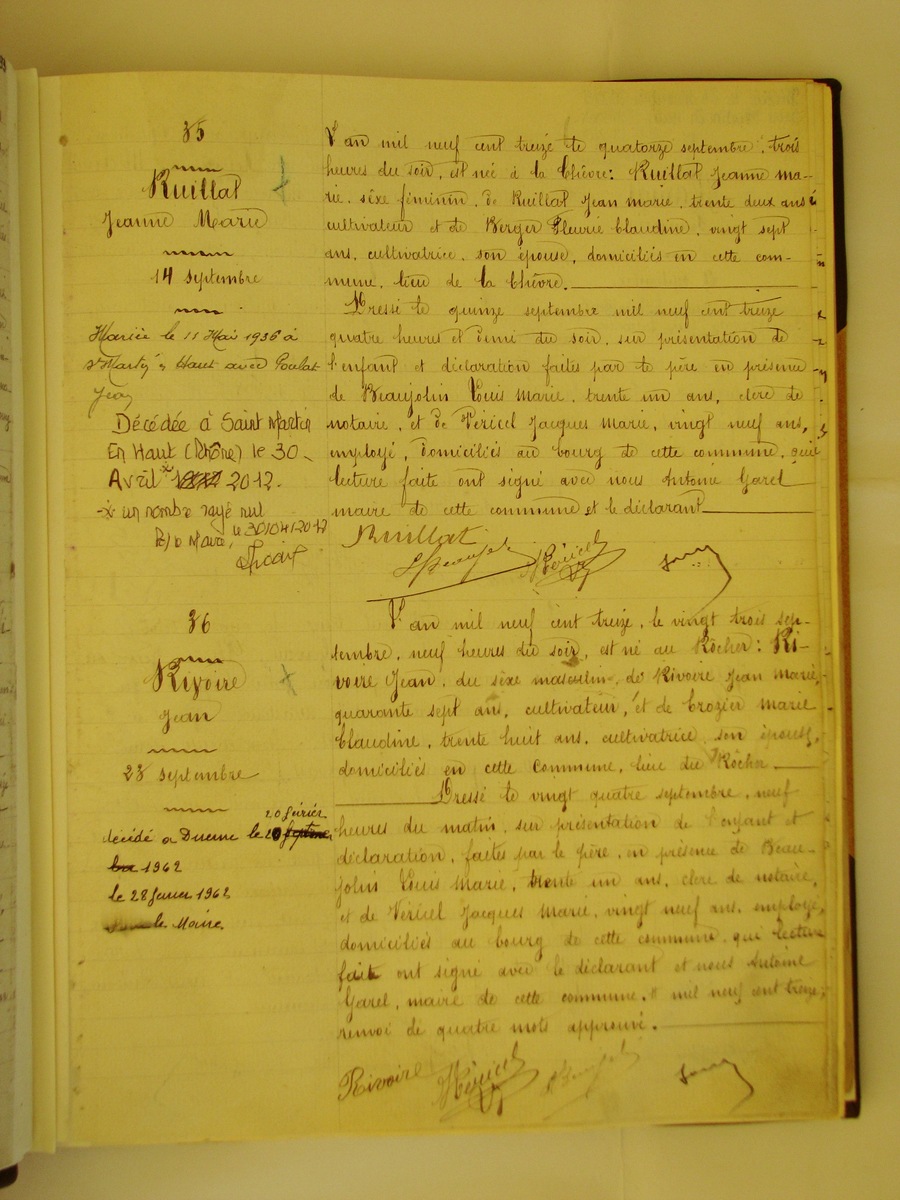 35
Ruillat
Jeanne Marie
14 septembre
Mariée le 11 Mai 1936 à
St Martin en Haut avec Poulat
Jean
Décédée à Saint Martin
En Haut (Rhône) le 30
Avril * 2012.
* un nombre rayé nul
le 30/04/2012
P/o Maire,
L'an mil neuf cent treize le quatorze septembre, trois
heures du soir, est née à la Chèvre: Ruillat Jeanne ma-
rie, sèxe féminin, de Ruillat Jean marie, trente deux ans
cultivateur et de Berger Fleurie Claudine, vingt sept
ans, cultivatrice, son épouse, domiciliés en cette com-
mune, lieu de la Chèvre.
Dressé le quinze septembre mil neuf cent treize
quatre heures et demi du soir, sur présentation de
l'enfant et déclaration faites par le père en présence
de Beaujolin Louis Marie, trente un ans, clerc de
notaire, et de Véricel Jacques Marie, vingt neuf ans,
employé, domiciliés au bourg de cette commune, qui
lecture faite ont signé avec nous Antoine Garel
maire de cette commune et le déclarant
Ruillat
Véricel
36
Rivoire
Jean
23 septembre
20 février
décédé a Duerne le
1962
le 28 1962
le Maire.
L'an mil neuf cent treize, le vingt trois sep-
tembre, neuf heures du soir, est né au Rocher: Ri-
voire Jean, du sèxe masculin, de Rivoire Jean Marie,
quarante sept ans, cultivateur, et de Crozier Marie
Claudine, trente huit ans, cultivatrice, son épouse,
domiciliés en cette commune, lieu du Rocher
Dressé le vingt quatre septembre, neuf
heures du matin, sur présentation de l'enfant et
déclaration, faites par le père, en présence de Beau-
jolin Louis Marie, trente un ans, clerc de notaire,
et de Véricel Jacques Marie, vingt neuf ans, employé,
domiciliés au bourg de cette commune, qui lecture
faite ont signé avec le déclarant et nous Antoine
Garel, maire de cette commune. # mil neuf cent treize,
renvoi de quatre mots approuvé.
Rivoire Véricel